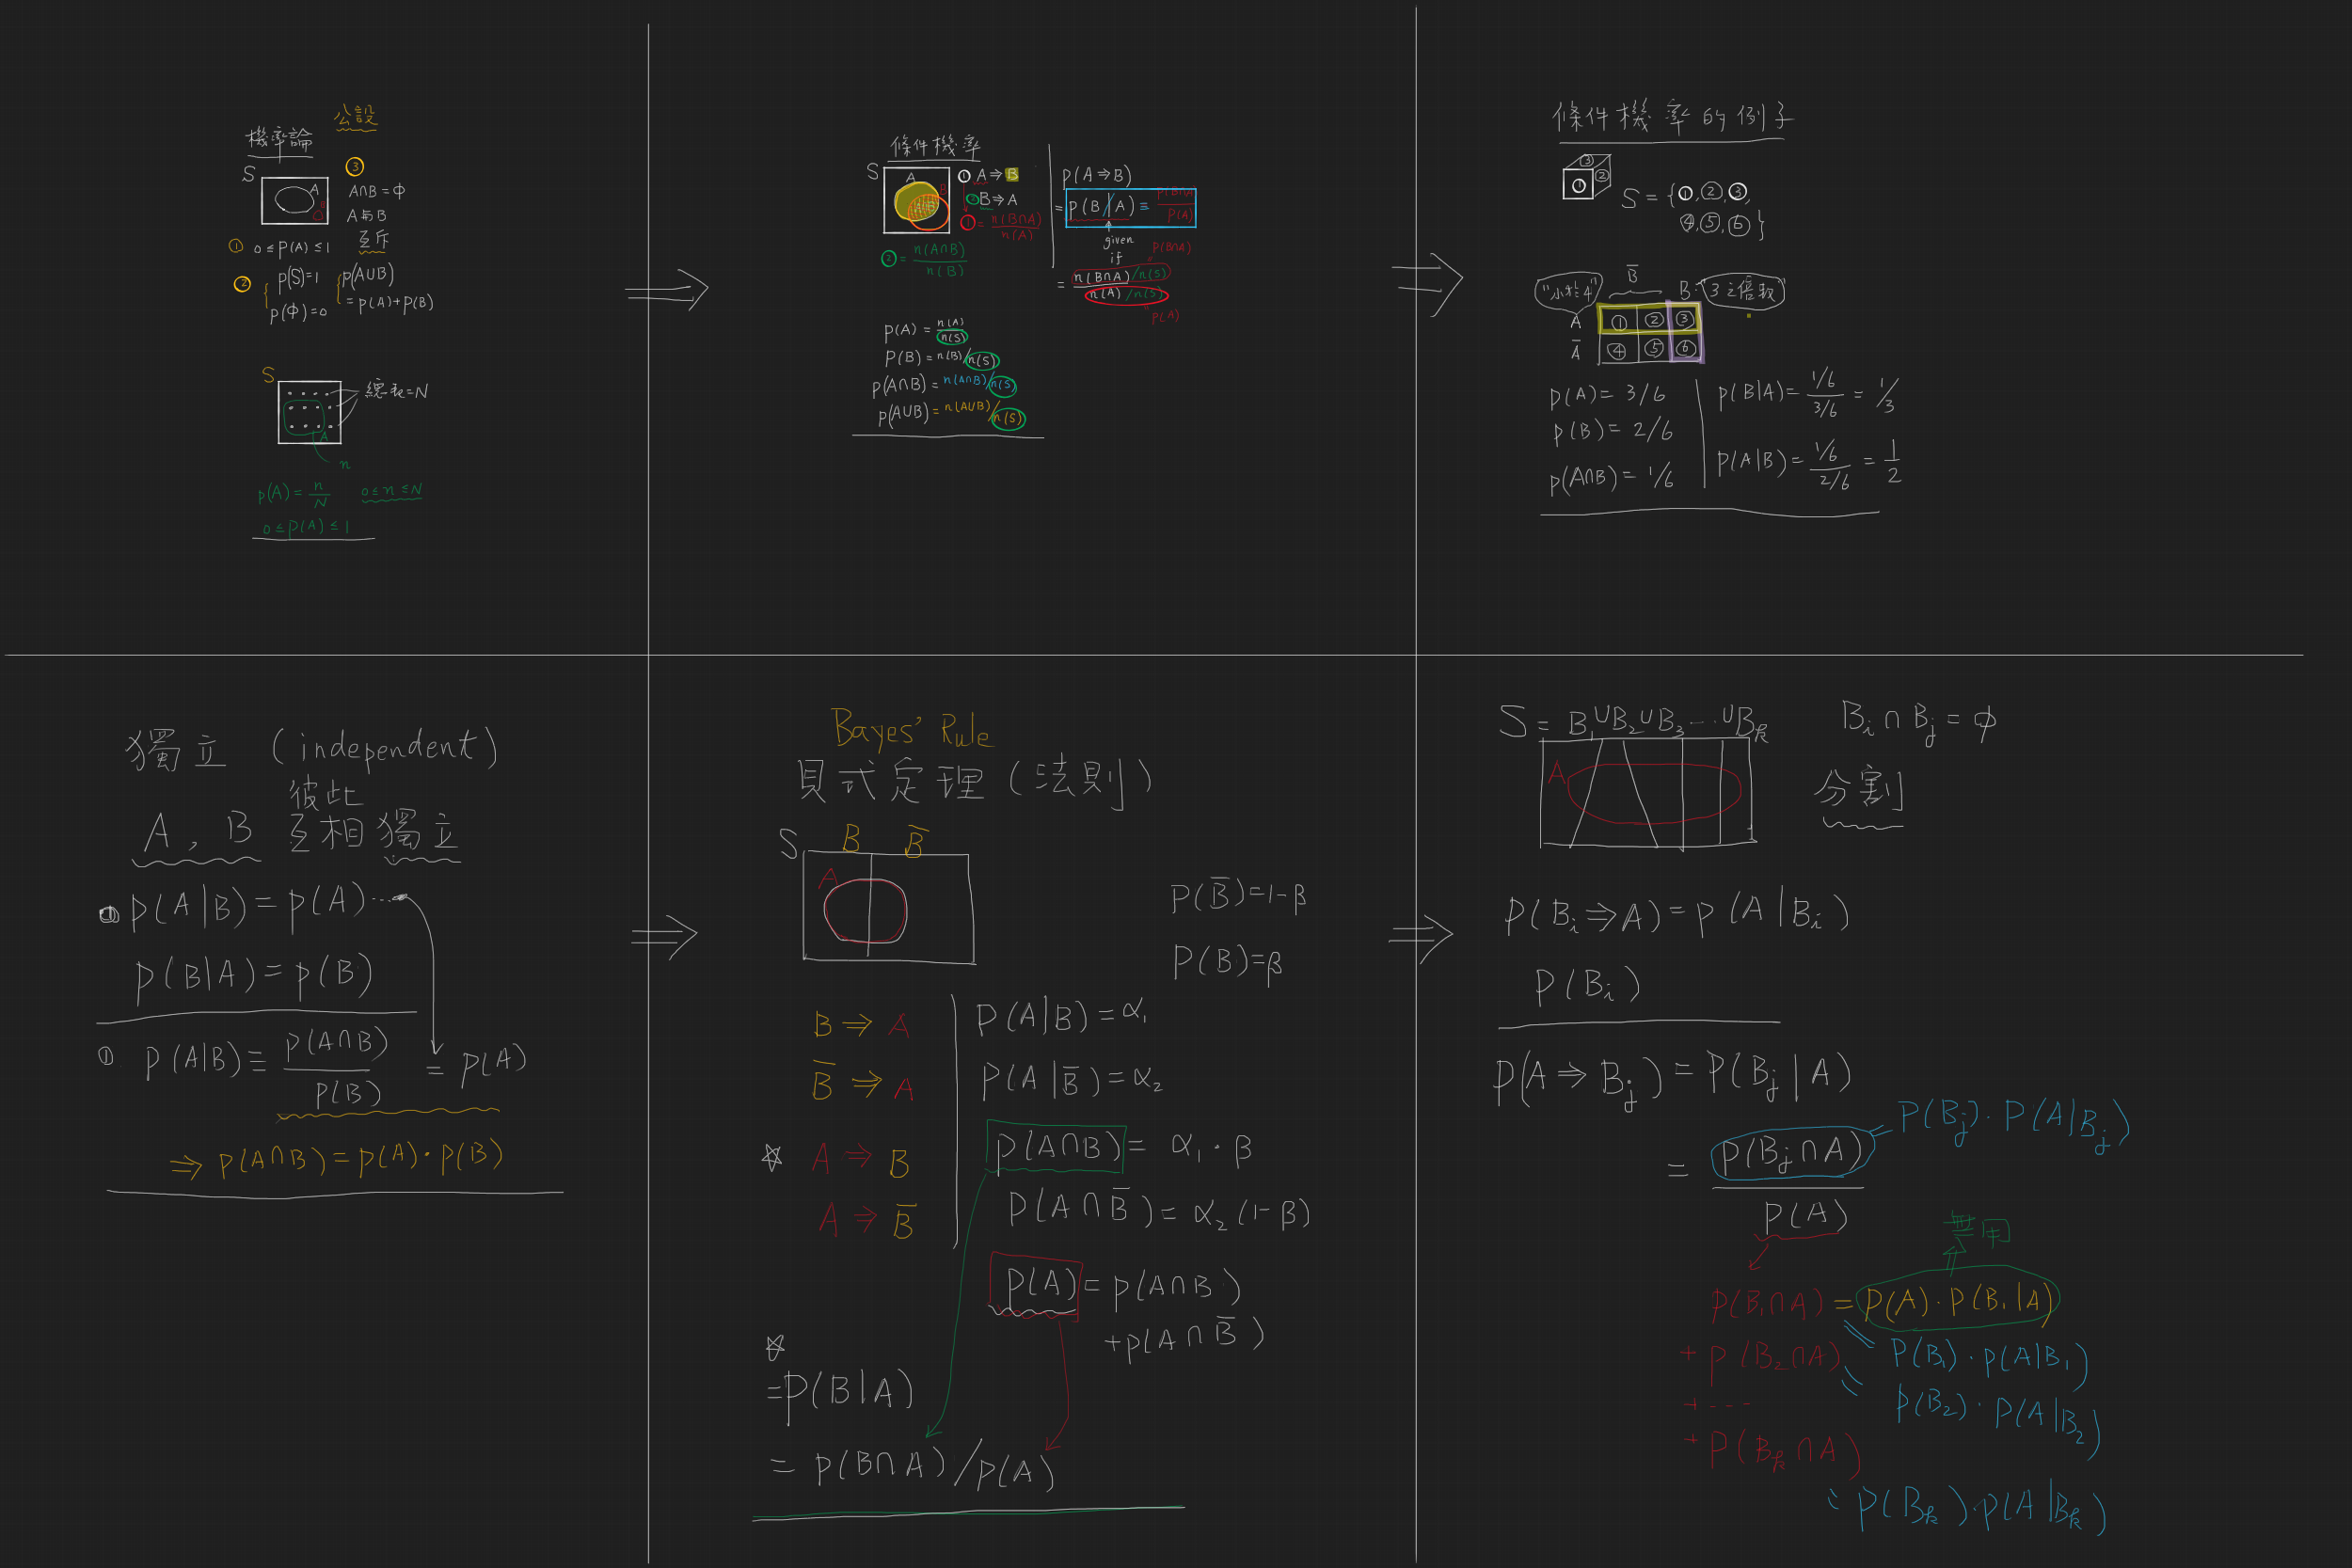 機率論
公設
S
A
① 0 ≤ P(A) ≤ 1
② P(S)=1
P(Φ)=0
③
A∩B=Φ
A與B
互斥
P(A∪B)
=P(A)+P(B)
S
總表=N
A
n
P(A)=n/N 0≤n≤N
0≤P(A)≤1
條件機率
S
A
B
① A⇒B
② B⇒A
① = n(B∩A)/n(A)
② = n(A∩B)/n(B)
P(A)=n(A)/n(S)
P(B)=n(B)/n(S)
P(A∩B)=n(A∩B)/n(S)
P(A∪B)=n(A∪B)/n(S)
P(A⇒B)
=P(B|A)=P(B∩A)/P(A)
given
if
P(B∩A)
= n(B∩A)/n(S)
n(A)/n(S)
P(A)
條件機率的例子
③
① ②
S={①,②,③,
④,⑤,⑥}
"小於4"
B̄
B:"3之倍數"
A ① ② ③
Ā ④ ⑤ ⑥
P(A)=3/6
P(B)=2/6
P(A∩B)=1/6
P(B|A)=(1/6)/(3/6)=1/3
P(A|B)=(1/6)/(2/6)=1/2
獨立 (independent)
彼此
A,B 互相獨立
① P(A|B)=P(A)…
P(B|A)=P(B)
① P(A|B)≡P(A∩B)/P(B)=P(A)
⇒P(A∩B)=P(A)·P(B)
Bayes' Rule
貝式定理(法則)
S B B̄
A
P(B̄)=1-β
P(B)=β
B⇒A
B̄⇒A
☆ A⇒B
A⇒B̄
P(A|B)=α₁
P(A|B̄)=α₂
P(A∩B)=α₁·β
P(A∩B̄)=α₂(1-β)
P(A)=P(A∩B)
+P(A∩B̄)
☆
=P(B|A)
=P(B∩A)/P(A)
S=B₁∪B₂∪B₃…∪Bₖ
Bᵢ∩Bⱼ=φ
A
分割
P(Bᵢ⇒A)=P(A|Bᵢ)
P(Bᵢ)
P(A⇒Bⱼ)=P(Bⱼ|A)
=P(Bⱼ∩A)/P(A)
=P(Bⱼ)·P(A|Bⱼ)
無用
P(B₁∩A)=P(A)·P(B₁|A)
P(B₁)·P(A|B₁)
+P(B₂∩A)
P(B₂)·P(A|B₂)
+---
+P(Bₖ∩A)
P(Bₖ)·P(A|Bₖ)